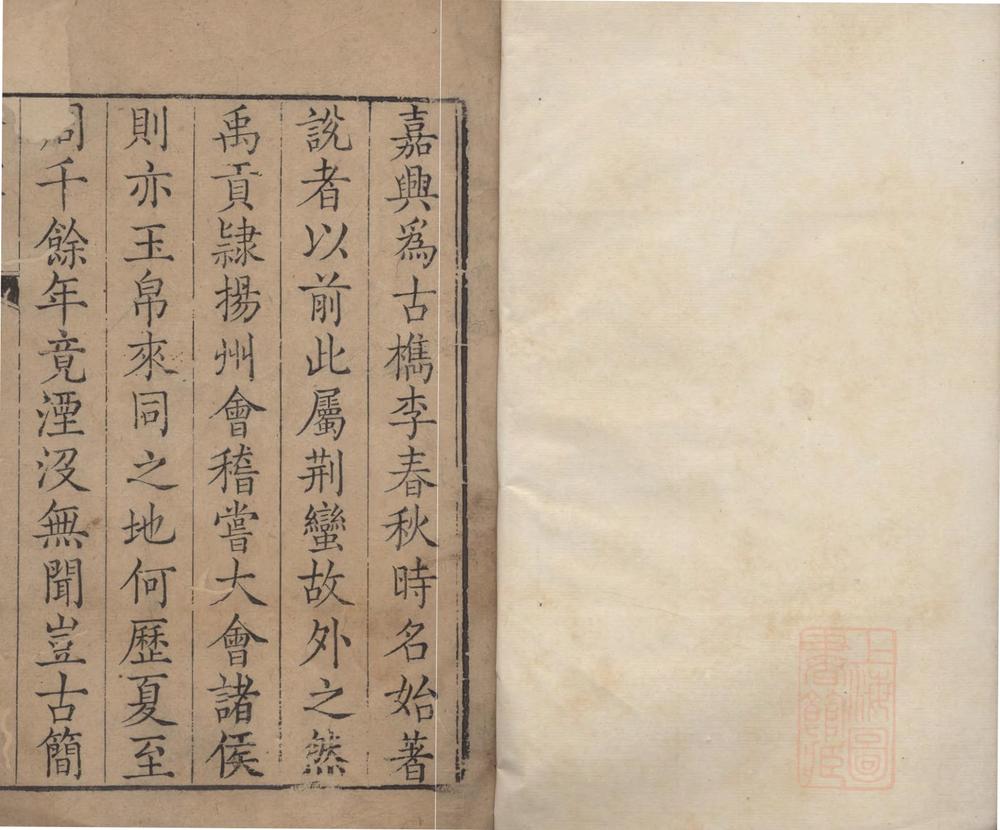 嘉興爲古檇李春秋時名始著
說者以前此屬荆蠻故外之然
禹貢隷揚州會稽嘗大會諸侯
則亦玉帛來同之地何歷夏至
周千餘年竟湮沒無聞豈古簡
上海圖
書館藏